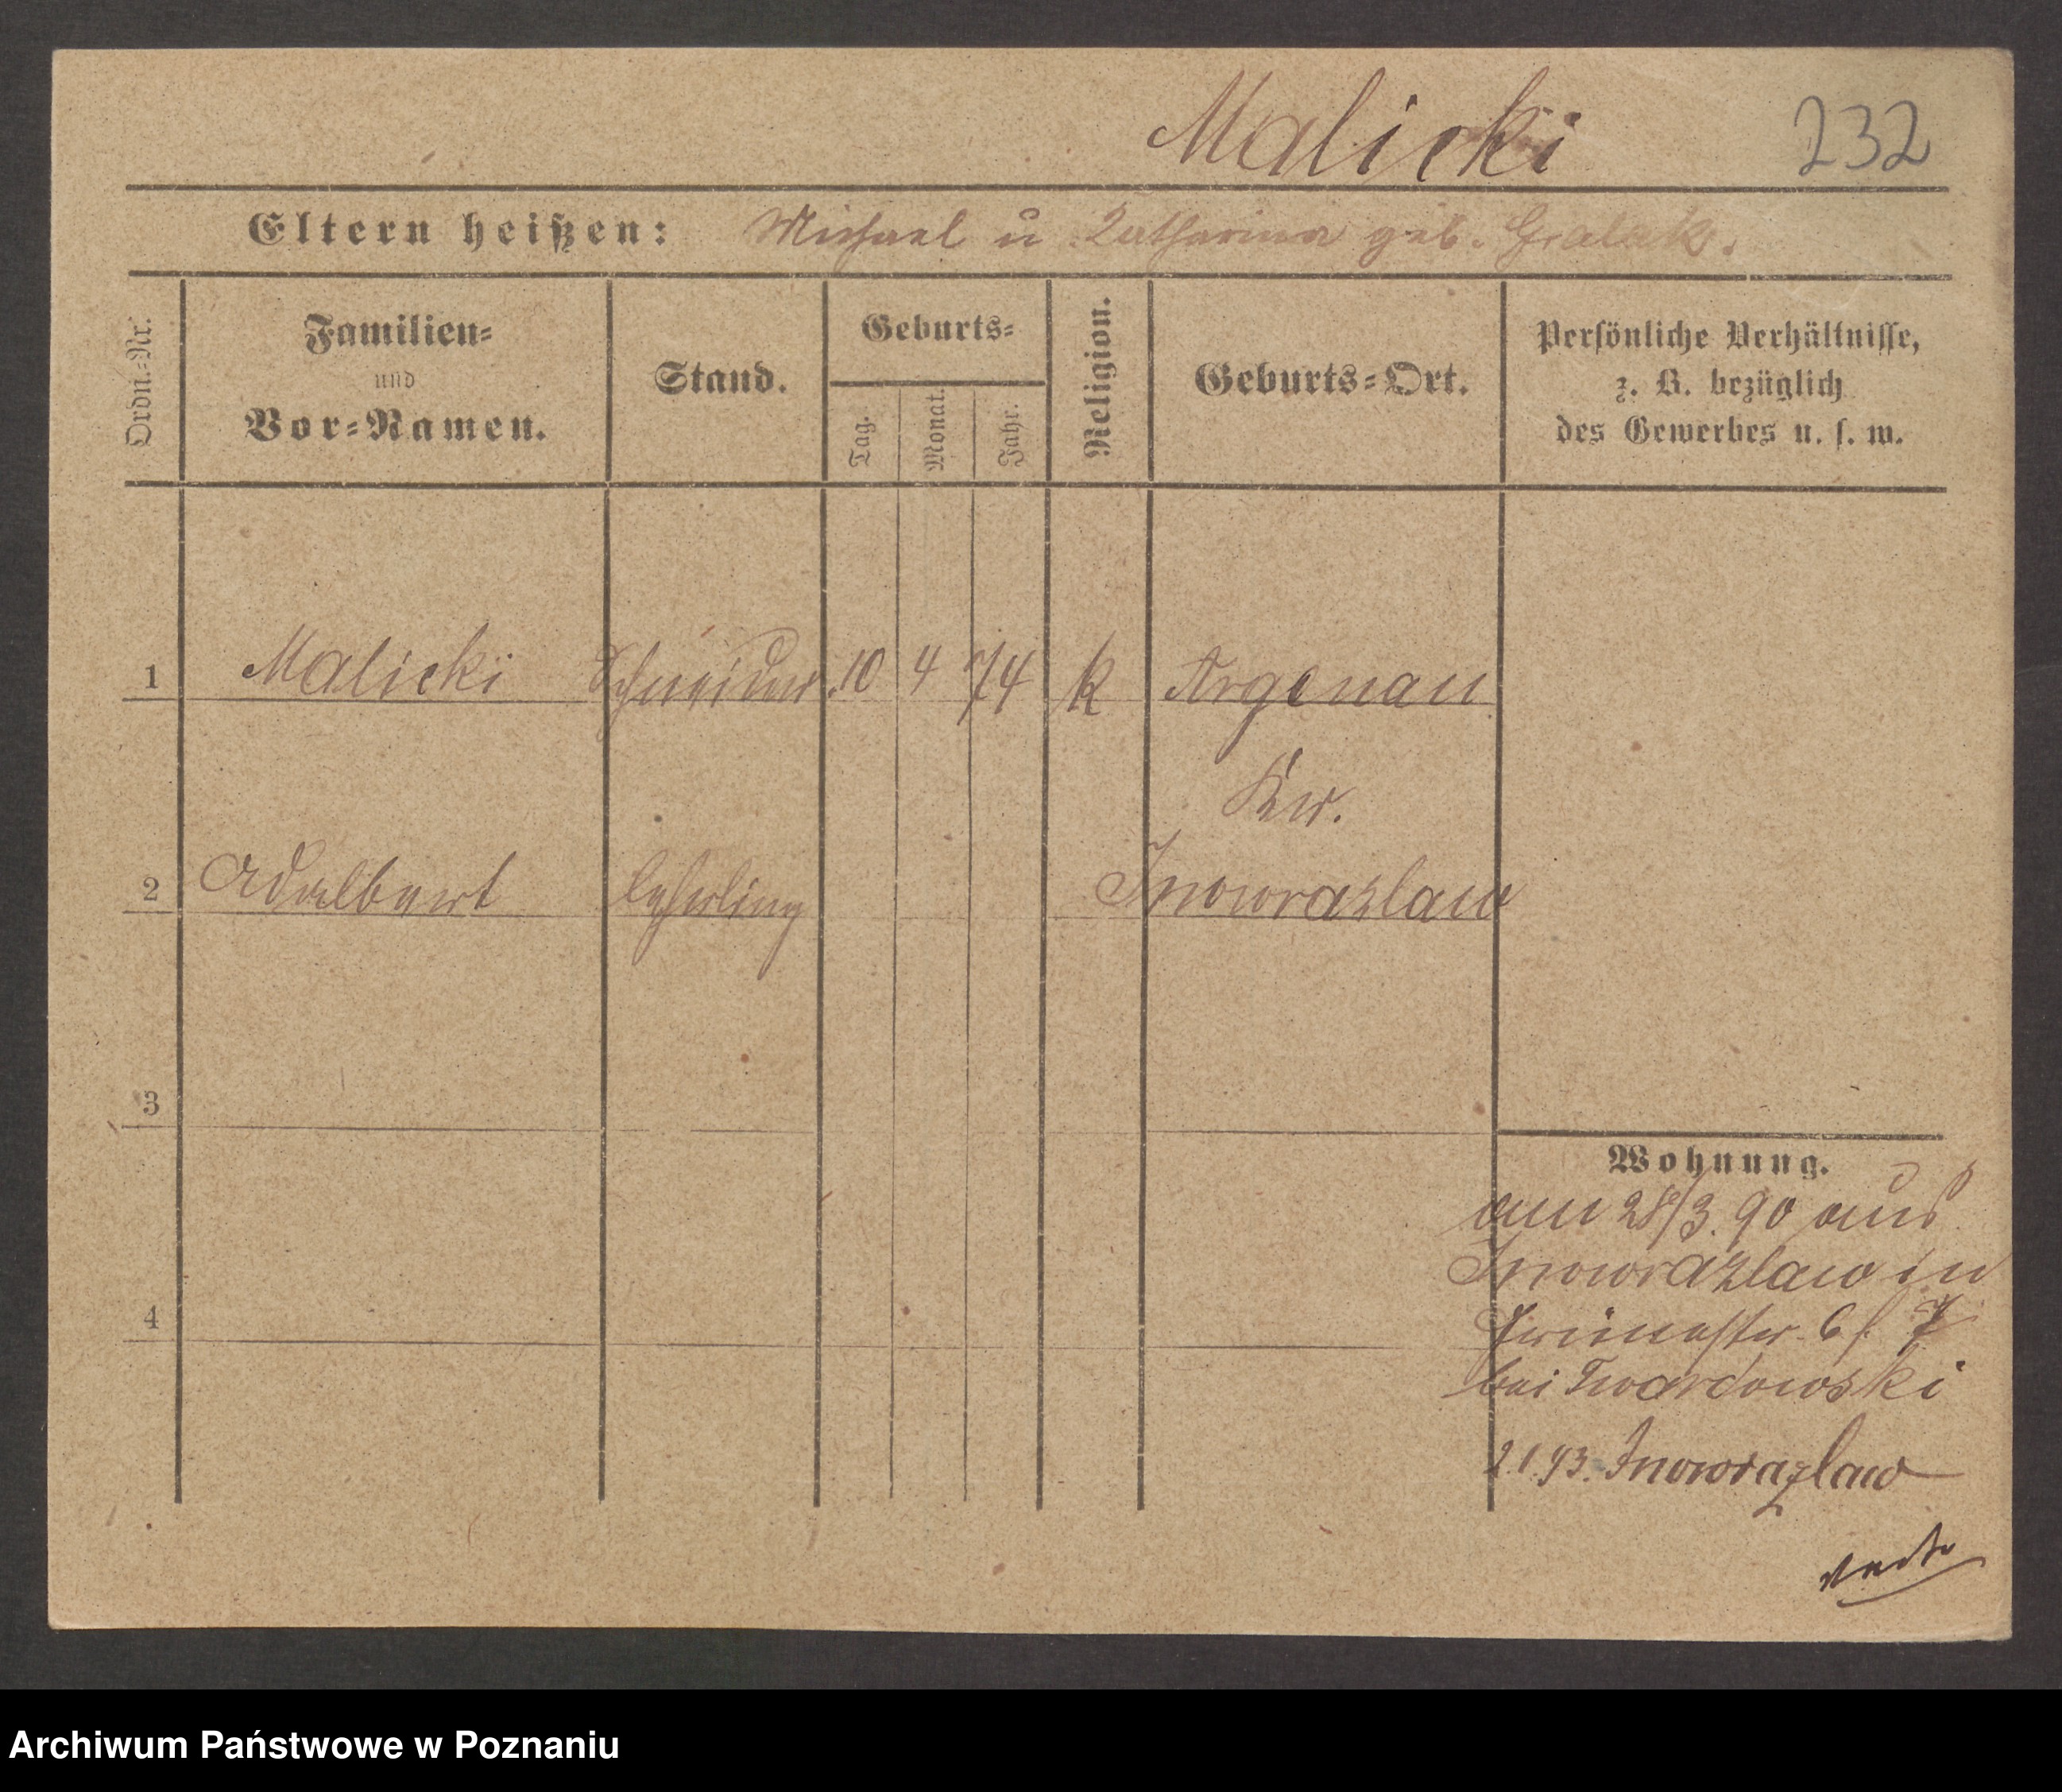 Malicki 232
Eltern heißen: Michael u Katharina geb. Gralak.
Ordn.-Nr.
Familien-
und
Vor-Namen.
Stand.
Geburts-
Tag.
Monat.
Jahr.
Religion.
Geburts-Ort.
Persönliche Verhältnisse,
z. B. bezüglich
des Gewerbes u. s. w.
1 Malicki Schneider 10 4 74 k Argenau
Kr.
2 Adalbert lehrling Inowrazlaw
3
4
Wohnung.
am 28/3. 90 aus
Inowrazlaw in
6 f. 7
bei Twardowski
2.1.93. Inowrazlaw
Archiwum Państwowe w Poznaniu